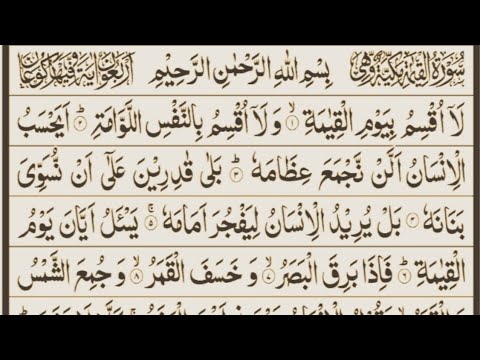 سُوْرَةُ الْقِيٰمَةِ مَكِّيَّةٌ وَّهِيَ بِسْمِ اللهِ الرَّحْمٰنِ الرَّحِيْمِ اَرْبَعُوْنَ اٰيَةً وَّفِيْهَا رُكُوْعَانِ
لَآ اُقْسِمُ بِيَوْمِ الْقِيٰمَةِ ۙ‏﴿۱﴾ وَلَآ اُقْسِمُ بِالنَّفْسِ اللَّوَّامَةِ ؕ‏﴿۲﴾ اَيَحْسَبُ
الْاِنْسَانُ اَلَّنْ نَّجْمَعَ عِظَامَهٗ ؕ‏﴿۳﴾ بَلٰى قٰدِرِيْنَ عَلٰٓى اَنْ نُّسَوِّىَ
بَنَانَهٗ ﴿۴﴾ بَلْ يُرِيْدُ الْاِنْسَانُ لِيَفْجُرَ اَمَامَهٗ ۚ‏﴿۵﴾ يَسْـَٔلُ اَيَّانَ يَوْمُ
الْقِيٰمَةِ ؕ‏﴿۶﴾ فَاِذَا بَرِقَ الْبَصَرُ ۙ‏﴿۷﴾ وَ خَسَفَ الْقَمَرُ ۙ‏﴿۸﴾ وَ جُمِعَ الشَّمْسُ